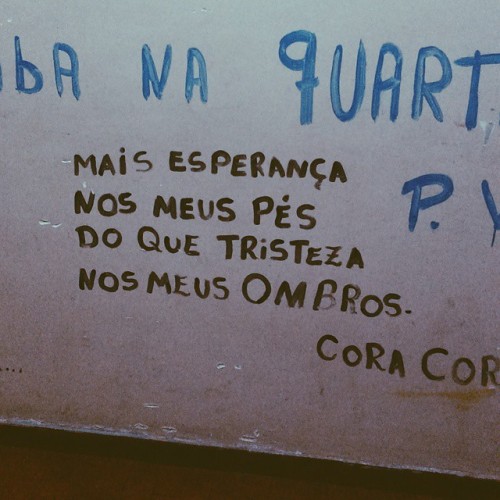 NA QUART
MAIS ESPERANÇA
NOS MEUS PÉS
P.
DO QUE TRISTEZA
NOS MEUS OMBROS.
CORA COR